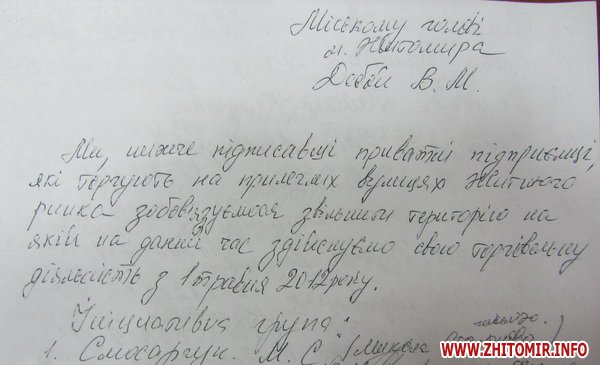 Міському голові
м. Житомира
Дебой В. М.
Ми, нижче підписавші приватні підприємці,
які торгують на прилеглих вулицях Житнього
ринка зобов'язуємося звільнити територію на
якій на даний час здійснуємо свою торгівельну
діяльність з 1 травня 2012 року.
Ініціативна група:
1. Слюсарчук. М. С (Микола
WWW.ZHITOMIR.INFO